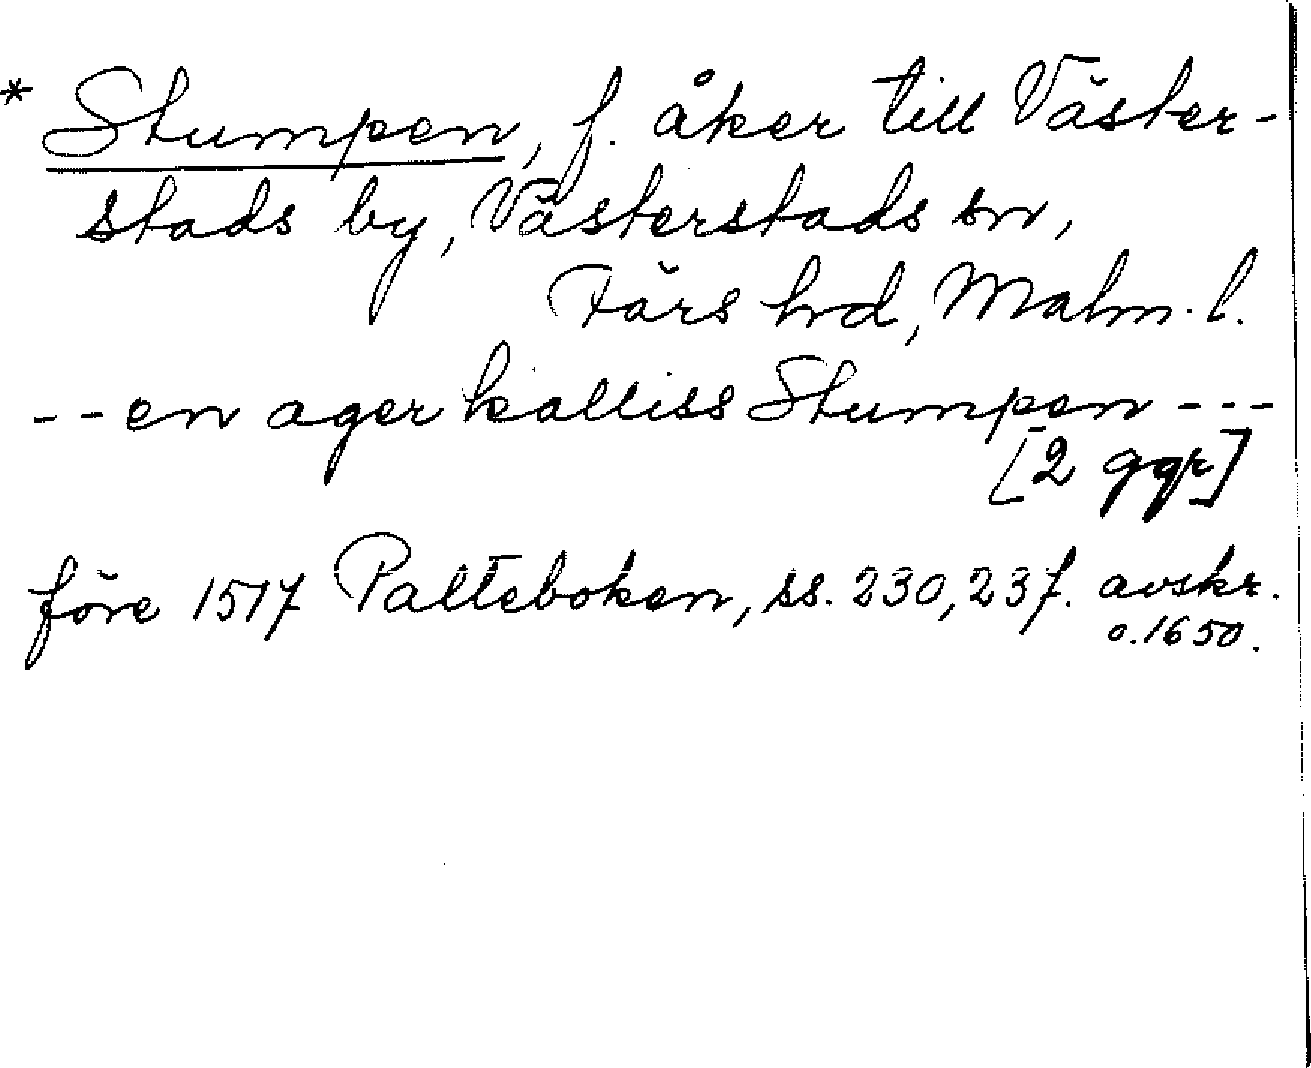 * Stumpen, f. åker till Väster-
stads by, Västerstads sn,
Färs hrd, Malm. l.
-- en ager kalliss Stumpen ---
[2 ggr]
före 1517 Palteboken, ss. 230, 237. avskr.
o. 1650.